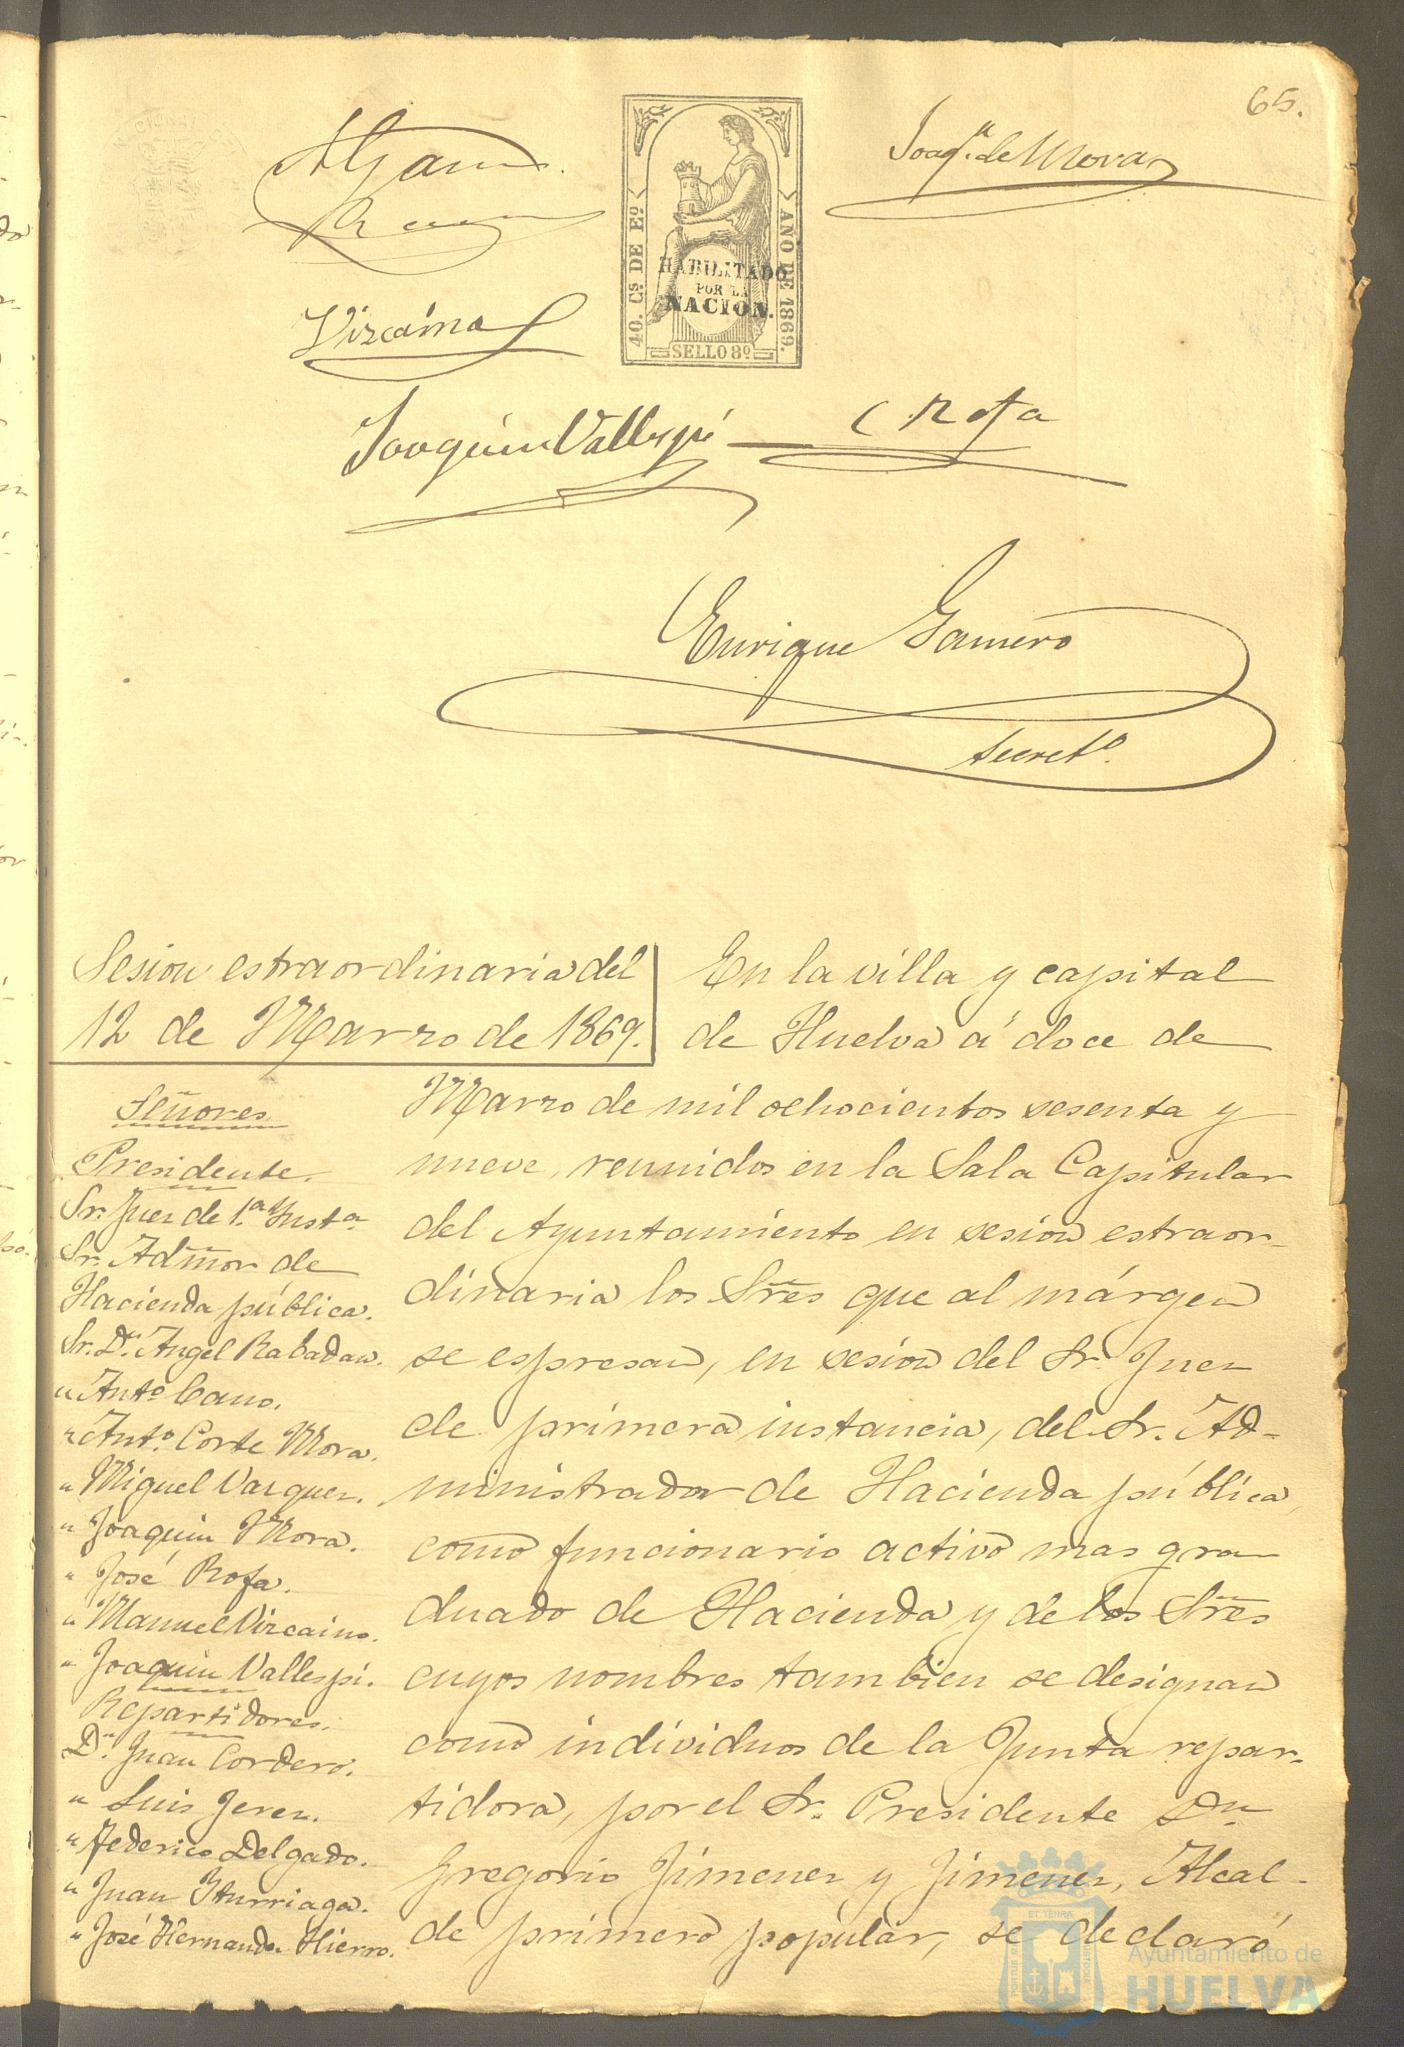 65.
Joaqn. de Mora
40. Cs DE Eo
AÑO DE 1869.
HABILITADO
POR LA
NACION.
SELLO 8º
Vizcaino
Joaquin Vallespi
Rofa
Enrique Gamero
Secreto.
Sesion estraordinaria del
12 de Marzo de 1869.
Señores
Presidente.
Sr. Juez de 1.a Insta.
Sr. Admor de
Hacienda pública.
Sr. Dn. Angel Rabadan.
" Anto. Cano.
" Anto. Corte Mora.
" Miguel Vazquez.
" Joaquin Mora.
" José Rofa.
" Manuel Vizcaino.
" Joaquin Vallespi.
Repartidores.
Dn. Juan Cordero.
" Luis Jerez.
" Federico Delgado.
" Juan Iturriaga.
" José Hernandez Hierro.
En la villa y capital
de Huelva á doce de
Marzo de mil ochocientos sesenta y
nueve, reunidos en la Sala Capitular
del Ayuntamiento en sesion estraor-
dinaria los Sres que al márgen
se espresan, en sesion del Sr. Juez
de primera instancia, del Sr. Ad-
ministrador de Hacienda pública,
como funcionario activo mas gra
duado de Hacienda y de los Sres
cuyos nombres tambien se designan
como individuos de la Junta repar-
tidora, por el Sr. Presidente Dn
Gregorio Jimenez y Jimenez, Alcal-
de primero popular, se declaró
Ayuntamiento de
HUELVA